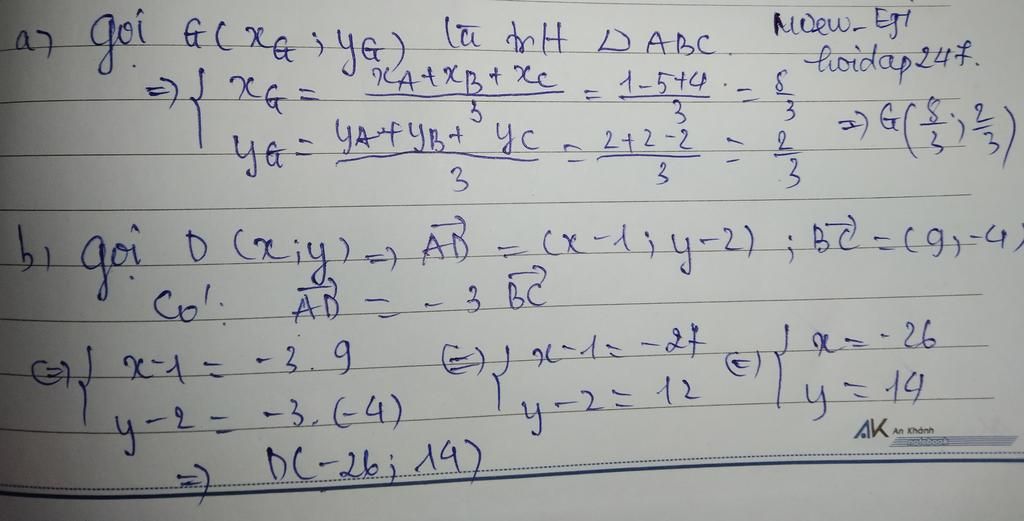 a, Gọi G(x_G; y_G) là trH ΔABC. Moew_Egi
hoidap247.
=> { x_G = (x_A + x_B + x_C)/3 = (1-5+4)/3 = 8/3
y_G = (y_A + y_B + y_C)/3 = (2+2-2)/3 = 2/3 => G(8/3; 2/3)
b, Gọi D (x;y) => \vec{AD} = (x-1; y-2) ; \vec{BC} = (9;-4)
Có: \vec{AD} = -3 \vec{BC}
<=> { x-1 = -3.9 <=> { x-1 = -27 <=> { x = -26
y-2 = -3.(-4) y-2 = 12 y = 14
=> D(-26; 14)
AK An Khánh
notebook